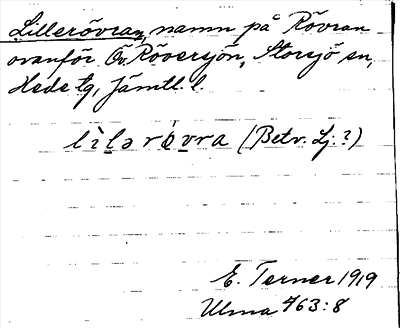 Lillerövran, namn på Rövran
ovanför Ö. Röversjön, Storsjö sn,
Hede tg, Jämtl. l.
lìlərövra (Betr. Lj.?)
E. Terner 1919
Ulma 463:8